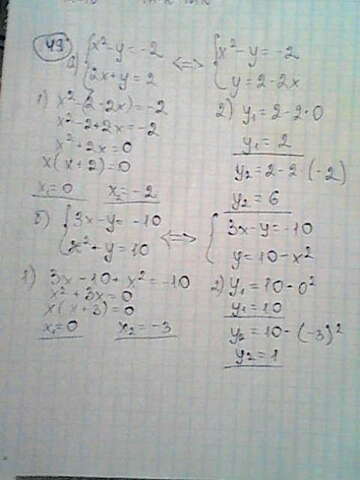 49
а) { x² - y = -2 <=> { x² - y = -2
{ 2x + y = 2 { y = 2 - 2x
1) x² - (2 - 2x) = -2
x² - 2 + 2x = -2
x² + 2x = 0
x(x + 2) = 0
x₁ = 0 x₂ = -2
2) y₁ = 2 - 2·0
y₁ = 2
y₂ = 2 - 2·(-2)
y₂ = 6
б) { 3x - y = -10 <=> { 3x - y = -10
{ x² + y = 10 { y = 10 - x²
1) 3x - 10 + x² = -10
x² + 3x = 0
x(x + 3) = 0
x₁ = 0 x₂ = -3
2) y₁ = 10 - 0²
y₁ = 10
y₂ = 10 - (-3)²
y₂ = 1